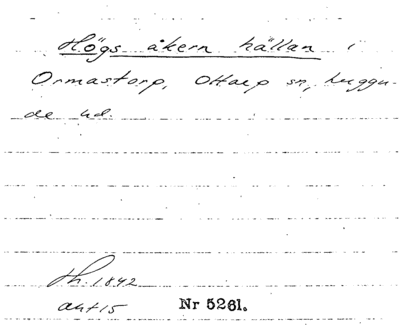 Högs åkern hällan i
Ormastorp, Ottarp sn, Luggu-
de hd.
Th. 1842
ant 15
Nr 5261.